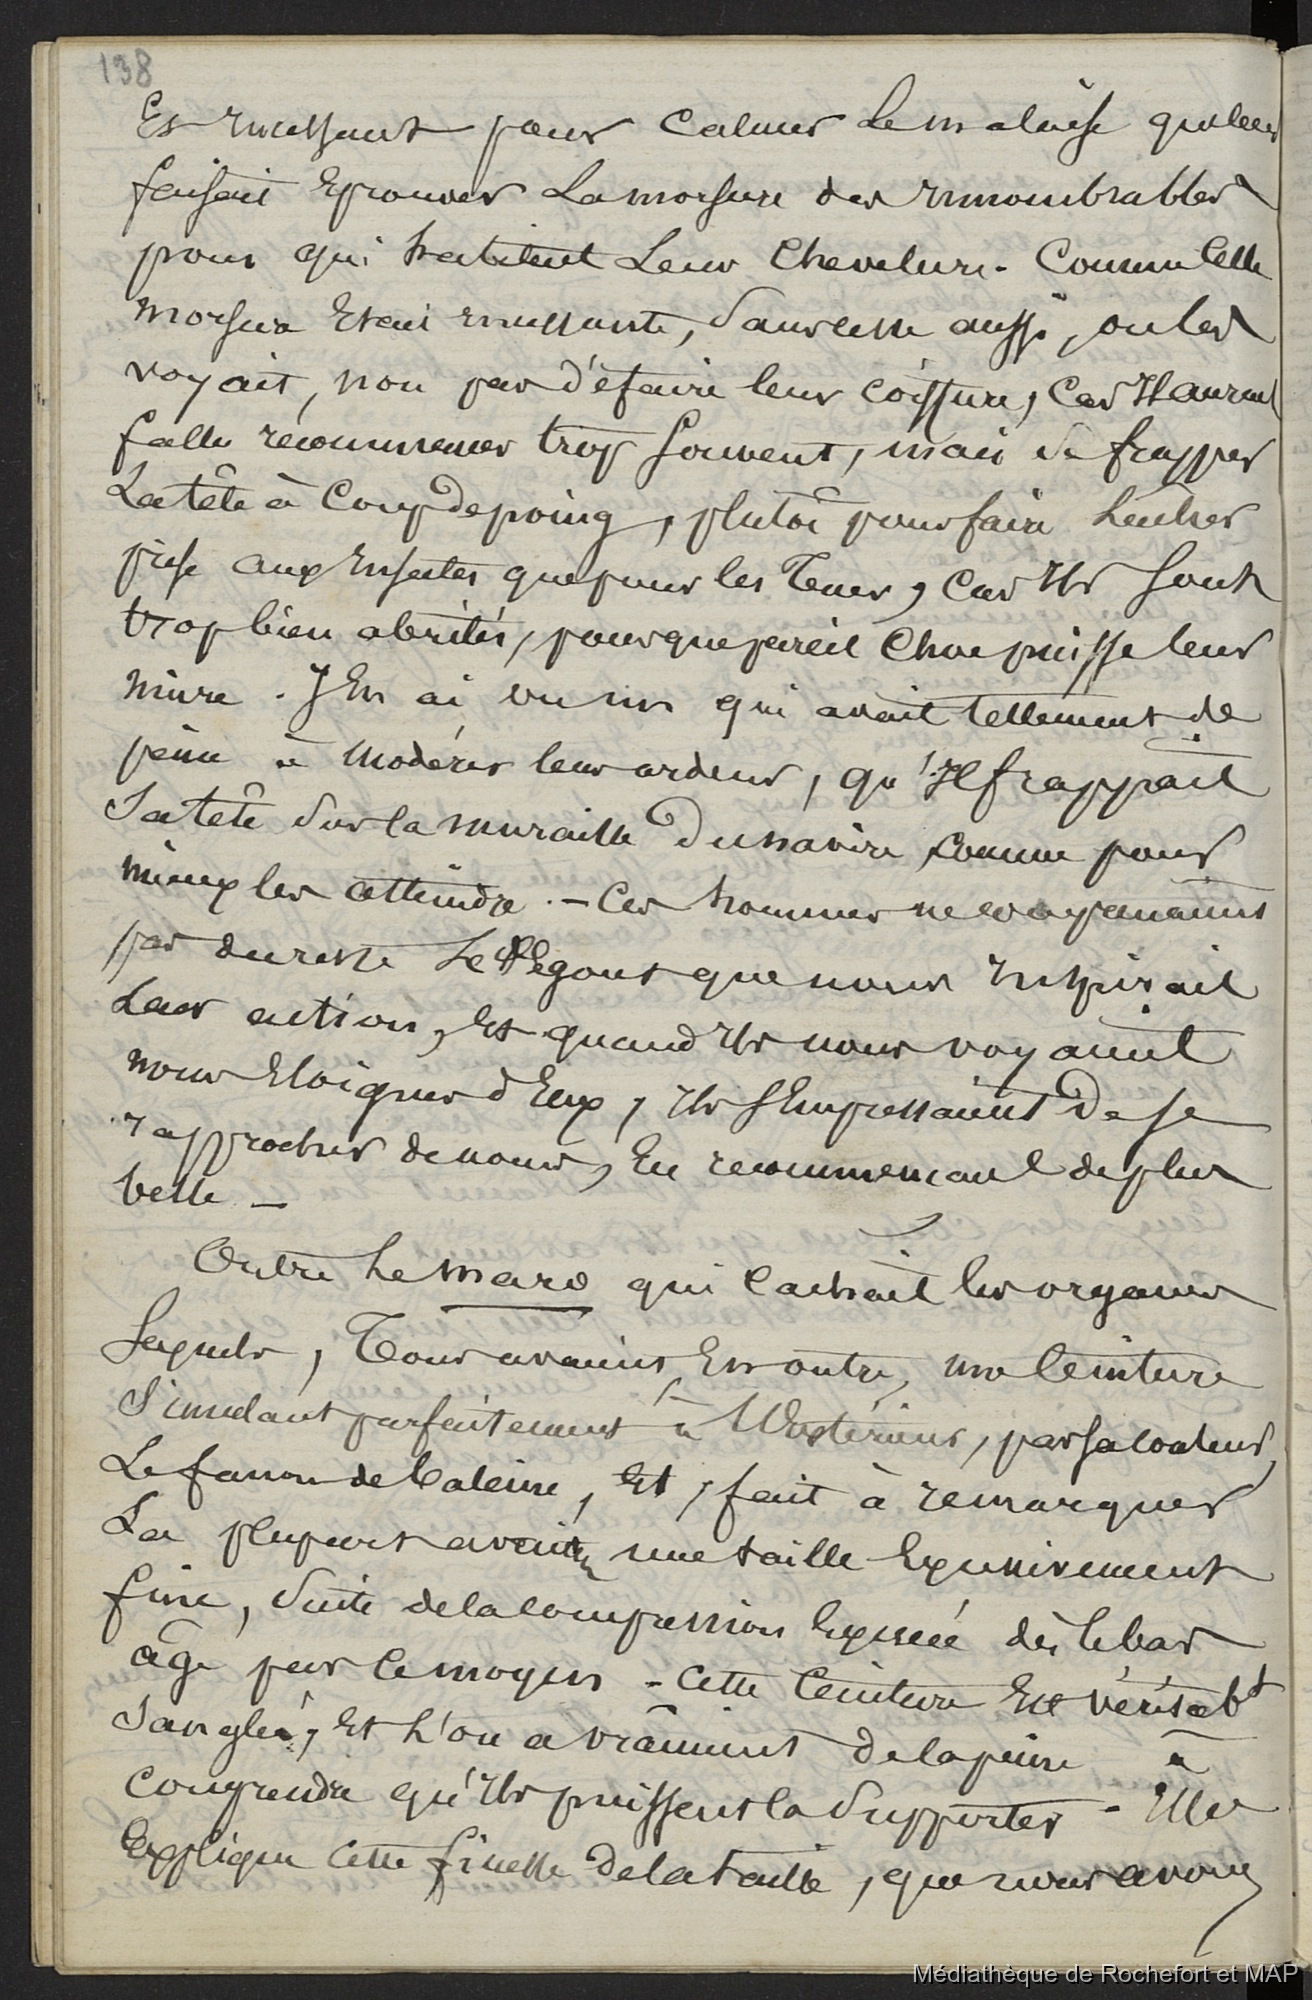 138
Est incessant pour calmer Le malaise que leur
faisait Eprouver La morsure des Innombrables
poux qui habitent Leur Chevelure. Comme Cette
morsure Etait incessante, sans cesse aussi, on les
voyait, non pas d'éfaire leur coiffure, Car Il aurait
fallu recommencer trop souvent, mais se frapper
La tête à Coup de poing, plutôt pour faire lâcher
prise aux Insectes que pour les Tuer, Car Ils sont
trop bien abrités, pour que pareil Choc puisse leur
nuire. J'En ai vu un qui avait tellement de
peine à modérer leur ardeur, qu'Il frappait
Sa tête sur la muraille Du navire, comme pour
mieux les atteindre. - Ces hommes ne voyaient
pas du reste Le Dégout que nous Inspirait
Leur action, Et quand Ils nous voyaient
nous Eloigner d'Eux, Ils s'Empressaient De se
rapprocher de nous, En recommencant de plus
belle -
Outre Le maro qui Cachait les organes
Sexuels, Tous avaient En outre, une Ceinture
Simulant parfaitement à l'Extérieur, par sa couleur,
Le fanon de baleine, Et, fait à remarquer
La plupart avaient une taille Excessivement
fine, Suite de la compression Exercée dès le bas
âge par ce moyen - Cette Ceinture Est véritabt
Sanglée, Et l'on a vraiment de la peine à
comprendre qu'Ils puissent la Supporter - Elle
Explique Cette finesse De la taille, que nous avons
Médiathèque de Rochefort et MAP